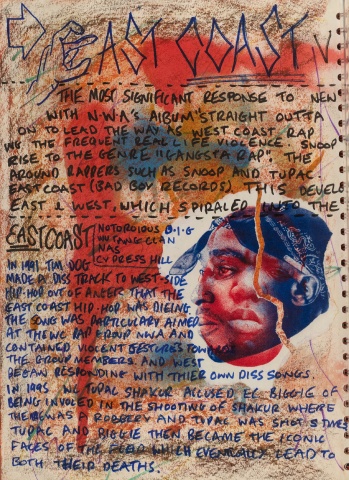 EAST COAST V.
THE MOST SIGNIFICANT RESPONSE TO NEW
WITH N.W.A's AlBUM "STRAIGHT OUTTA
ON TO LEAD THE WAY AS WEST COAST RAP
THE FREQUENT REAL LIFE VIOLENCE. SNOOP
RISE TO THE GENRE "GANGSTA RAP". THE
AROUND RAPPERS SUCH AS SNOOP AND TUPAC.
EAST COAST (BAD BOY RECORDS). THIS DEVELE
EAST & WEST, WHICH SPIRALED INTO THE
EAST COAST
NOTORIOUS B.I.G
WU TANG CLAN
NAS
CYPRESS HILL
IN 1991, TIM DOG
MADE A DISS TRACK TO WEST-SIDE
HIP-HOP OUT OF ANGER THAT THE
EAST COAST HIP-HOP WAS DIEING.
THE SONG WAS PARTICULARY AIMED
AT THE WC RAP GROUP NWA AND
CONTAINED VIOLENT GESTURES TOWARDS
THE GROUP MEMBERS. AND WEST
BEGAN RESPONDING WITH THIER OWN DISS SONGS
IN 1995 WC TUPAC SHAKUR ACCUSED EC BIGGIE OF
BEING INVOLED IN THE SHOOTING OF SHAKUR WHERE
THERE WAS A ROBBERY AND TUPAC WAS SHOT 5 TIMES
TUPAC AND BIGGIE THEN BECAME THE ICONIC
FACES OF THE FEUD WHICH EVENTUALLY LEAD TO
BOTH THEIR DEATHS.